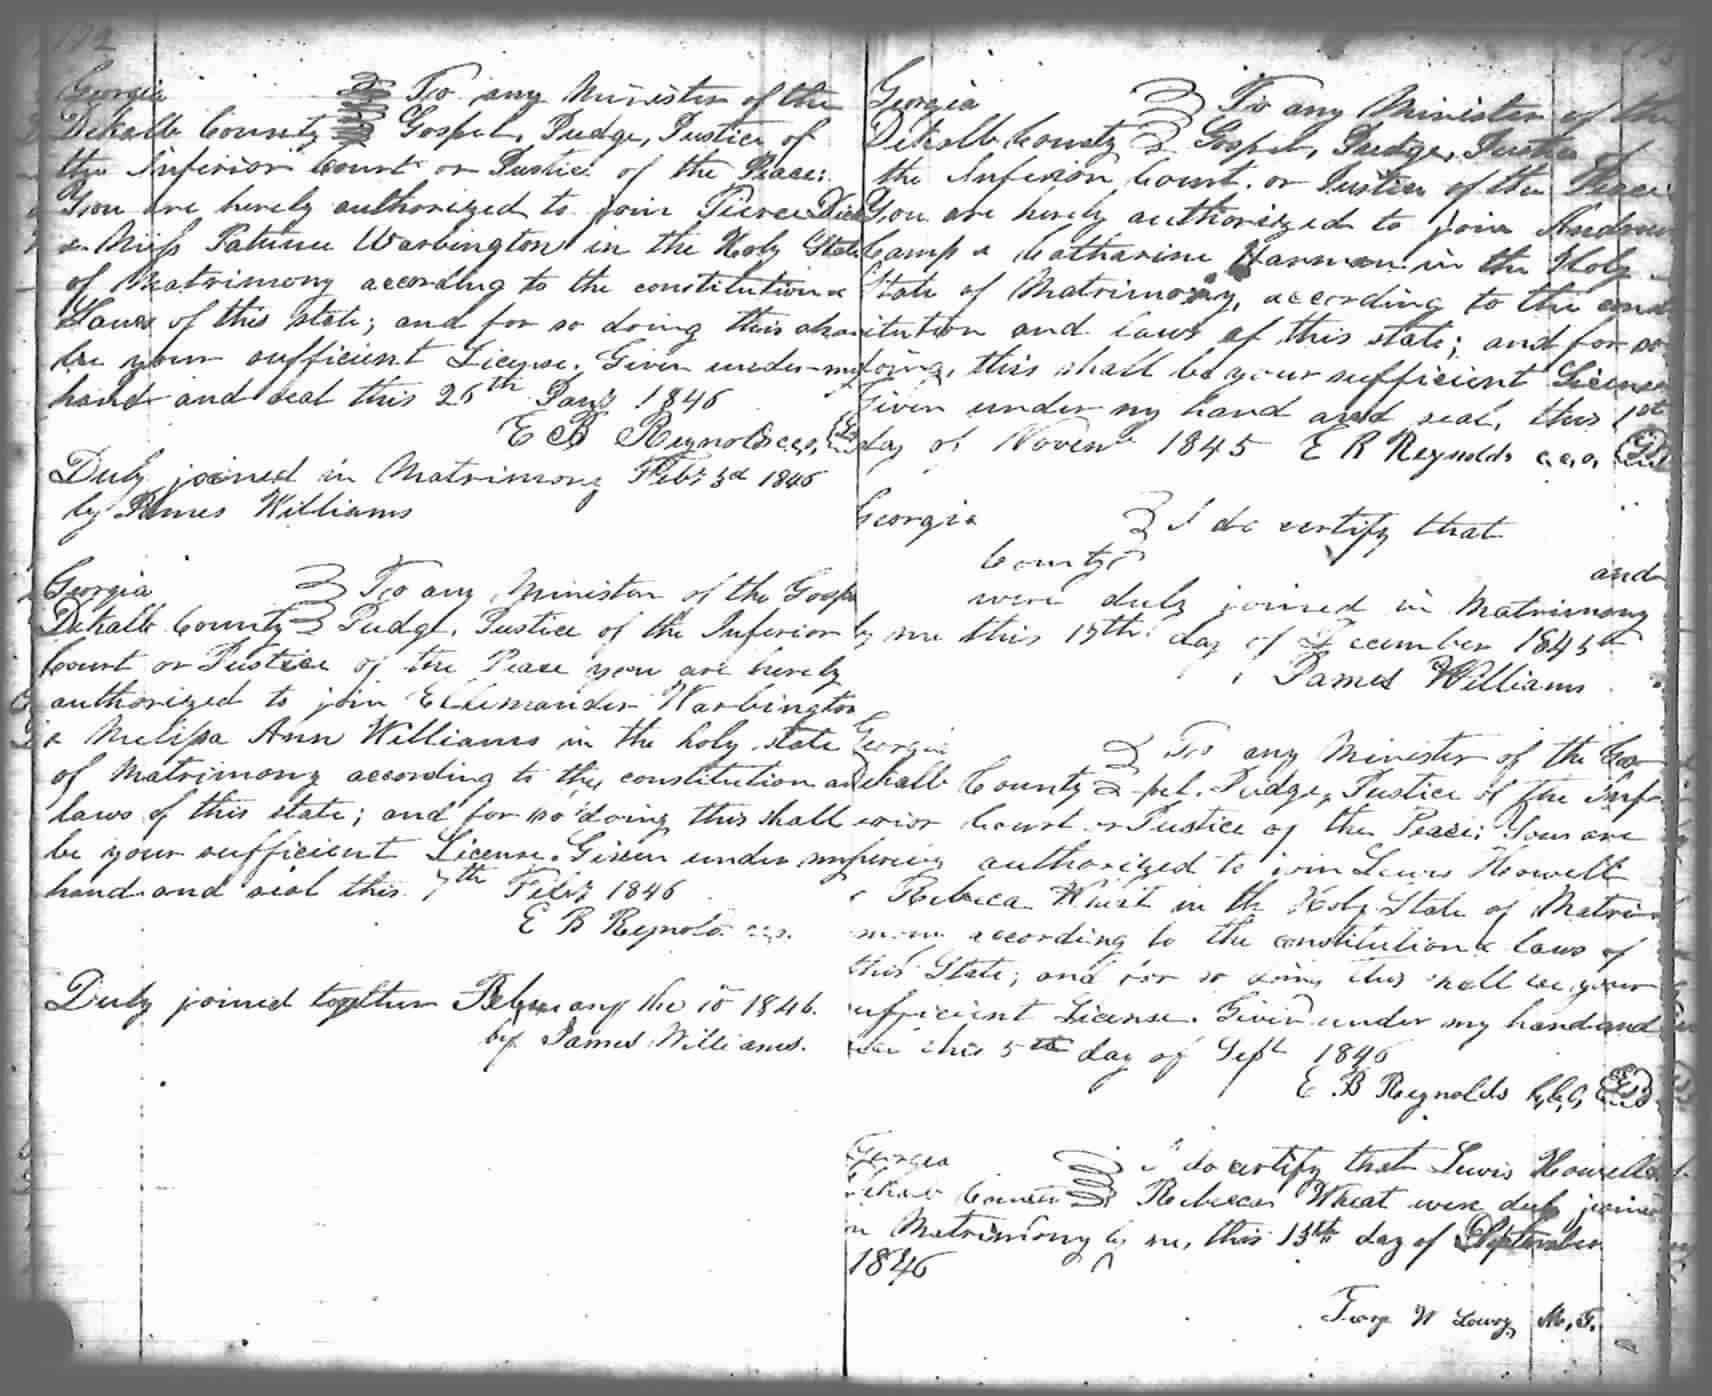 172
Georgia To any Minister of the
Dekalb County Gospel, Judge, Justice of
the Inferior Court or Justice of the Peace:
You are hereby authorized to join Pierce Dick
& Miss Warbington in the Holy State
of Matrimony according to the constitution &
Laws of this state; and for so doing this shall
be your sufficient License. Given under my
hand and seal this 26th Jany 1846
E B Reynolds c.c.o.
Duly joined in Matrimony Feby 3d 1846
by James Williams
Georgia To any Minister of the Gospel
Dekalb County Judge, Justice of the Inferior
Court or Justice of the Peace you are hereby
authorized to join Warbington
& Melissa Ann Williams in the holy state
of Matrimony according to the constitution and
laws of this state; and for so doing this shall
be your sufficient License. Given under my
hand and seal this 7th Feby 1846
E B Reynolds c.c.o.
Duly joined together February the 10 1846.
by James Williams.
Georgia To any Minister of the
Dekalb County Gospel, Judge, Justice
the Inferior Court or Justice of the Peace
You are hereby authorized to join Andrew
Camp & Catharine Harmon in the Holy
State of Matrimony, according to the const
itution and laws of this state; and for so
doing, this shall be your sufficient License
Given under my hand and seal, this 1st
day of Novem 1845 E R Reynolds c.c.o.
Georgia I do certify that
County and
were duly joined in Matrimony
by me this 15th day of December 1845
James Williams
Georgia To any Minister of the Gos-
Dekalb County pel. Judge, Justice of the Infe-
erior Court or Justice of the Peace: You are
hereby authorized to join Lewis Howell
& Rebecca Wheat in the Holy State of Matri-
mony according to the constitution & laws of
this State; and for so doing this shall be your
sufficient License. Given under my hand and
seal this 5th day of Sept 1846
E B Reynolds C.C.O.
Georgia I do certify that Lewis Howell
Dekalb County & Rebecca Wheat were duly joined
in Matrimony by me, this 13th day of September
1846
W Lowry M.G.